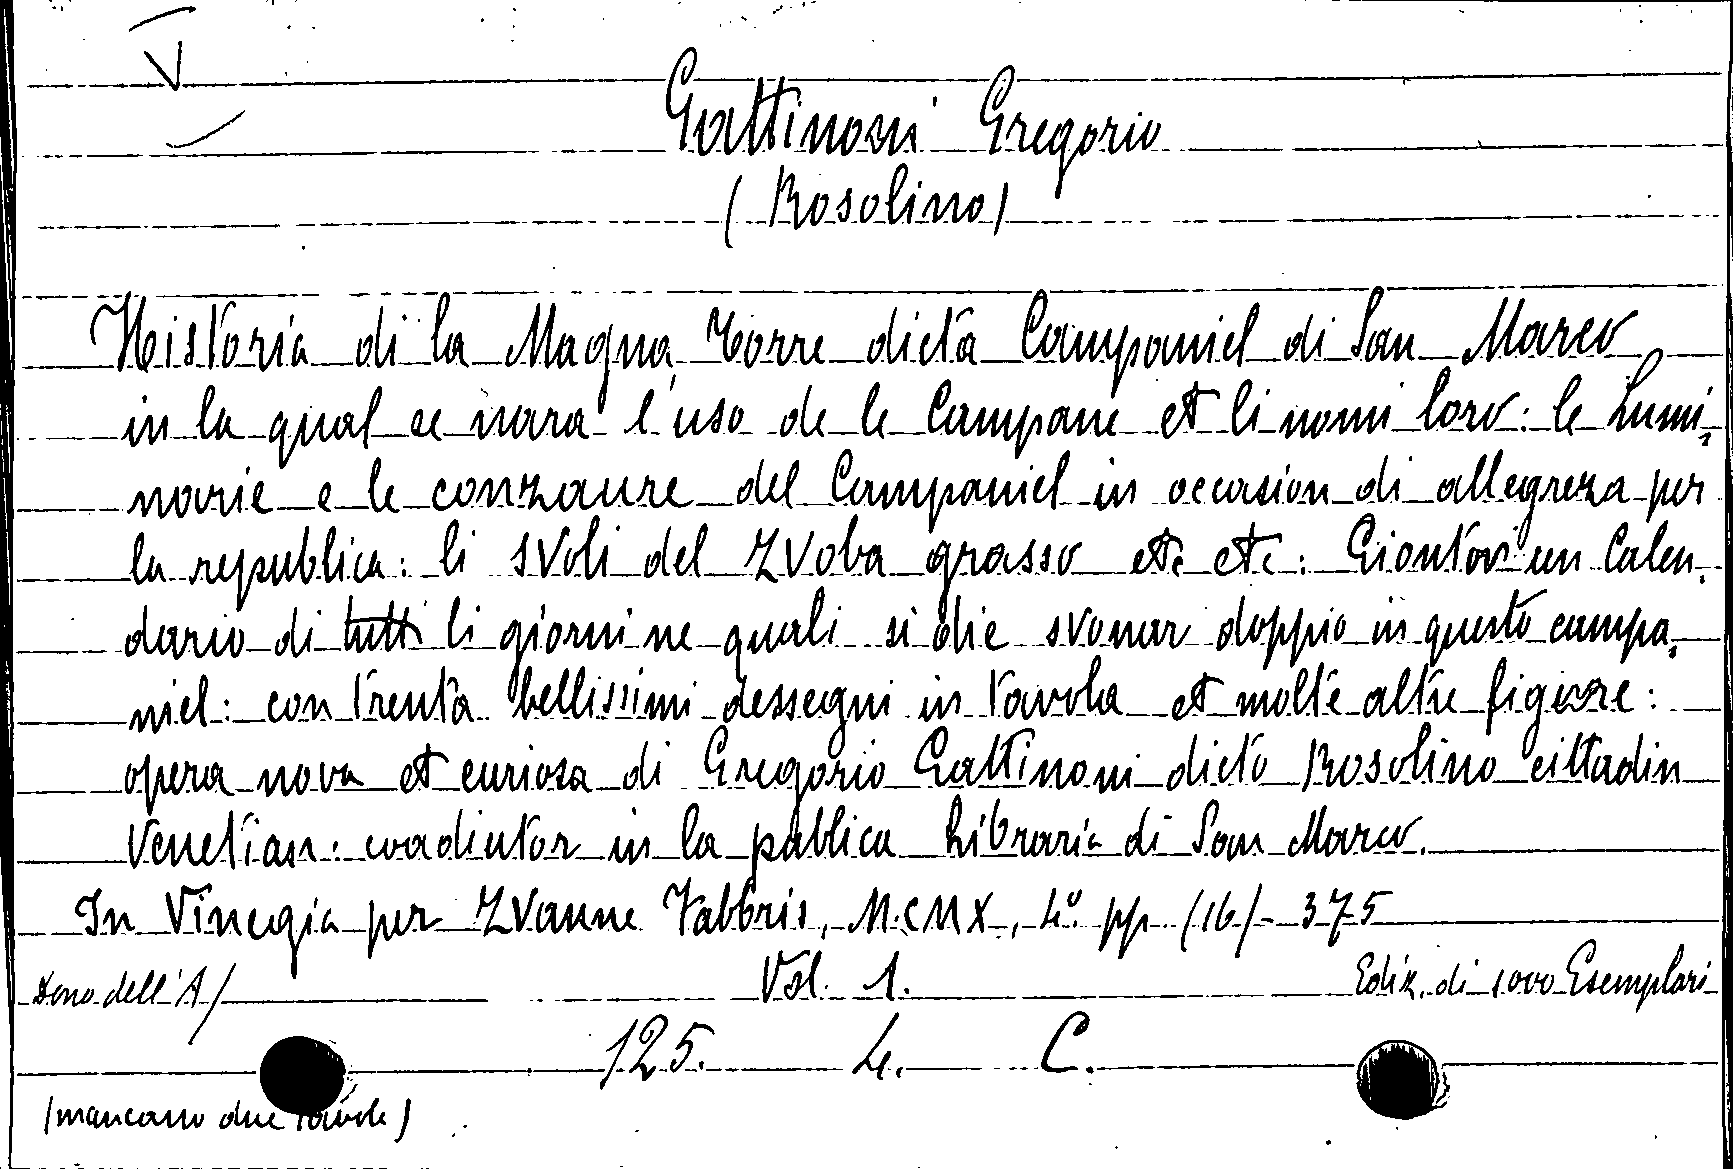 V
Gattinoni Gregorio
(Rosolino)
Historia di la Magna Torre dicta Campaniel di San Marco
in la qual se nara l'uso de le Campane et li nomi loro: le Lumi-
narie e le conzaure del Campaniel in occasion di allegreza per
la republica: li svoli del Zvoba grasso etc etc: Giontovi un Calen-
dario di tutti li giorni ne quali si die svonar doppio in questo campa-
niel: con trenta bellissimi dessegni in tavola et molte altre figure:
opera nova et curiosa di Gregorio Gattinoni dicto Rosolino cittadin
Venetian: coadiutor in la publica Libraria di San Marco.
In Vinegia per Zvanne Fabbris, M.CMX, 4º pp (16)-375
Dono dell'A/ Vol. 1. Ediz. di 1000 Esemplari
125. 4. C.
(mancano due tavole)